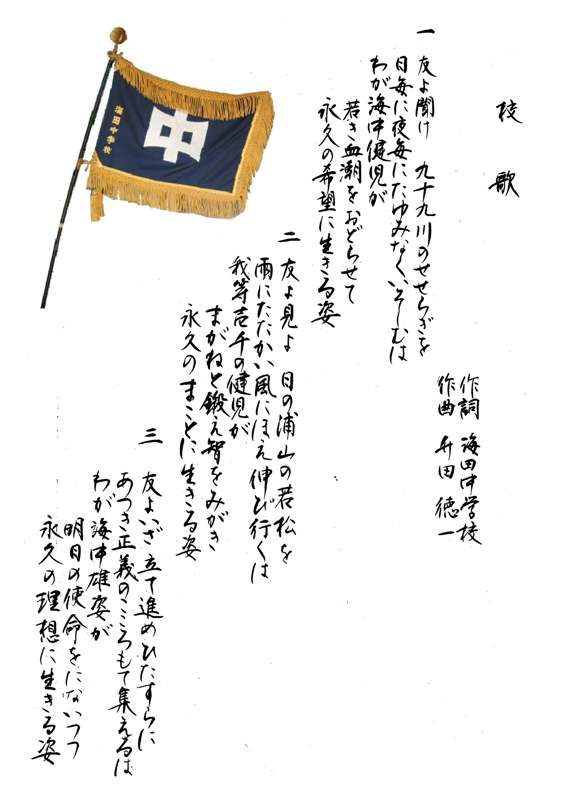 校歌
作詞 海田中学校
作曲 升田徳一
一 友よ聞け 九十九川のせせらぎを
日毎に夜毎にたゆみなくいそしむは
わが海中健児が
若き血潮をおどらせて
永久の希望に生きる姿
二 友よ見よ 日の浦山の若松を
雨にたたかい風にほえ伸び行くは
我等壱千の健児が
まがねと鍛え智をみがき
永久のまことに生きる姿
三 友よいざ立て進めひたすらに
あつき正義のこころもて集えるは
わが海中雄姿が
明日の使命をにないつつ
永久の理想に生きる姿
中
海田中学校